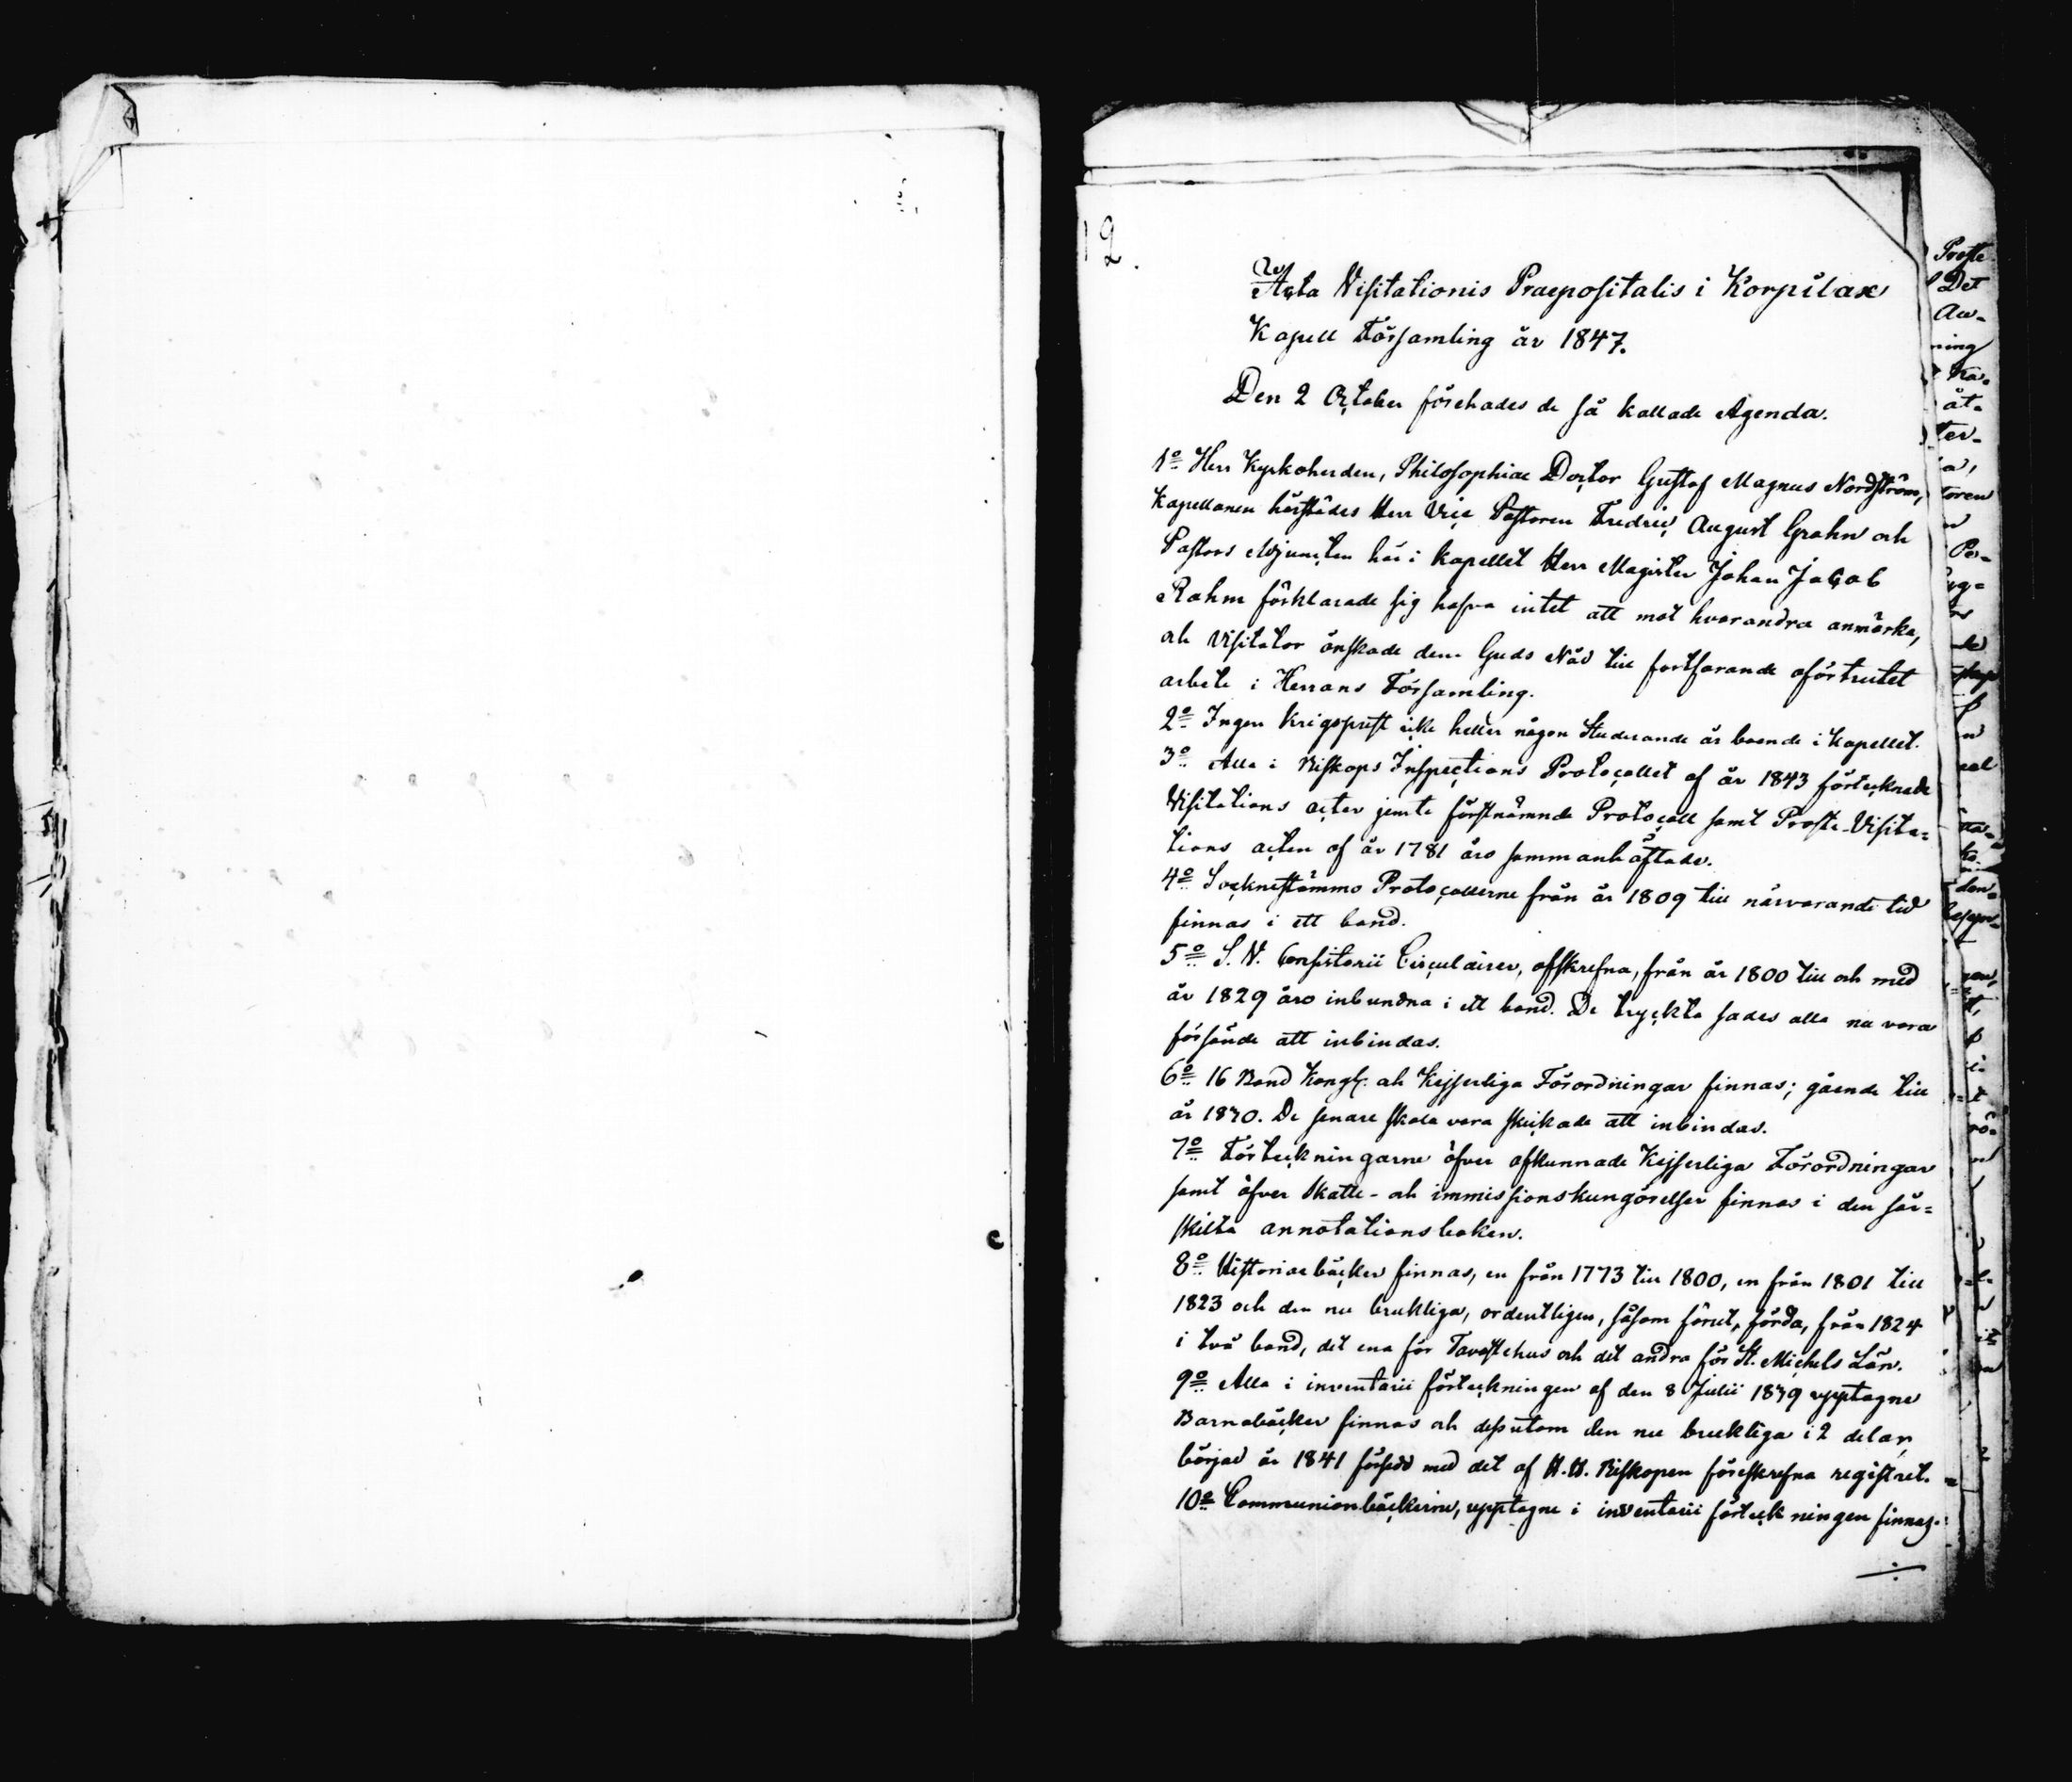 12.
Acta Visitationis Praepositalis i Korpilax
Kapell Församling år 1847.
Den 2 October förehades de så kallade Agenda.
1º Herr Kyrkoherden, Philosophiae Doctor Gustaf Magnus Nordström,
Kapellanen härstädes Herr Vice Pastoren Fredric August Grahn och
Pastors Adjuncten här i kapellet Herr Magister Johan Jacob
Rahm förklarade sig hafva intet att mot hvarandra anmärka,
och Visitator önskade dem Guds Nåd till fortfarande oförtrutet
arbete i Herrans Församling.
2º Ingen Krigsprest icke heller någon Studerande är boende i kapellet.
3º Alla i Biskops Inspections Protocollet af år 1843 förtecknade
Visitations acter jemte förstnämnde Protocoll samt Proste-Visita=
tions acten af år 1781 äro sammanhäftade.
4º Sockenstämmo Protocollerne från år 1809 till närvarande tid
finnas i ett band.
5º S. V. Consistorii Circulairer, afskrefna, från år 1800 till och med
år 1829 äro inbundna i ett band. De tryckta sades alla nu vara
försände att inbindas.
6º 16 Band Kongl. och Kejserliga Förordningar finnas; gående till
år 1830. De senare skola vara skickade att inbindas.
7º Förteckningarne öfver afkunnade Kejserliga Förordningar
samt öfver Skatte- och immissionskungörelser finnas i den sär=
skilta annotationsboken.
8º Historiaeböcker finnas, en från 1773 till 1800, en från 1801 till
1823 och den nu brukliga, ordentligen, såsom förut, förda, från 1824
i två band, det ena för Tavastehus och det andra för St. Michels Län.
9º Alla i inventarii förteckningen af den 8 Julii 1839 upptagne
Barnaböcker finnas och dessutom den nu brukliga i 2 delar,
börjad år 1841 försedd med det af H. H. Biskopen föreskrefna registret.
10º Communionböckerne, upptagne i inventarii förteckningen finnas.